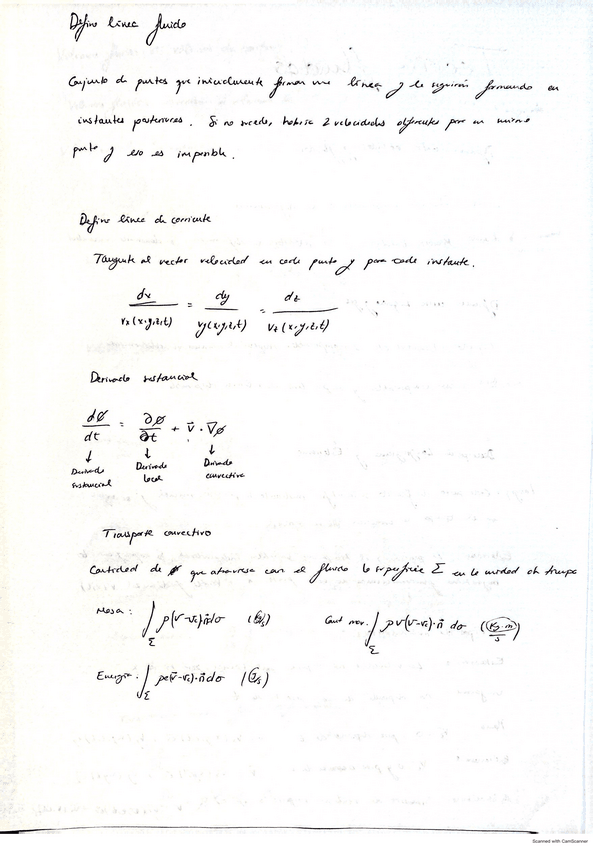 Define linea fluido
Conjunto de puntos que inicialmente forman una linea y la seguirán formando en
instantes posteriores. Si no sucede, habria 2 velocidades diferentes por un mismo
punto y eso es imposible.
Define linea de corriente
Tangente al vector velocidad en cada punto y para cada instante.
dx / vx(x,y,z,t) = dy / vy(x,y,z,t) = dz / vz(x,y,z,t)
Derivada sustancial
dø/dt = ∂ø/∂t + v⃗ · ∇ø
↓ ↓ ↓
Derivada Derivada Derivada
sustancial local convectiva
Transporte convectivo
Cantidad de ø que atraviesa con el fluido la superficie Σ en la unidad de tiempo
Masa: ∫Σ ρ(v⃗-vc)·n⃗ dσ (kg/s) Cant mov. ∫Σ ρv(v-vc)·n⃗ dσ (kg·m/s)
Energía. ∫Σ ρe(v⃗-vc)·n⃗ dσ (J/s)
Scanned with CamScanner